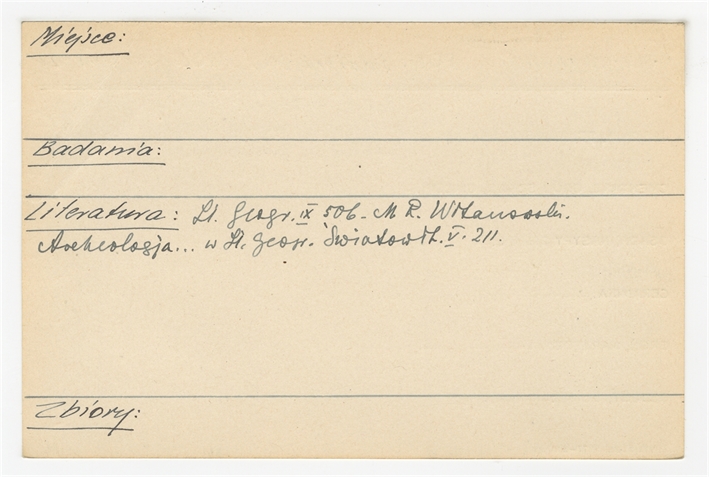 Miejsce:
Badania:
Literatura: Sł. geogr. IX 506 - M R. Witanowski.
Archeologja... w Sł. geogr. Światowit. V. 211.
Zbiory: